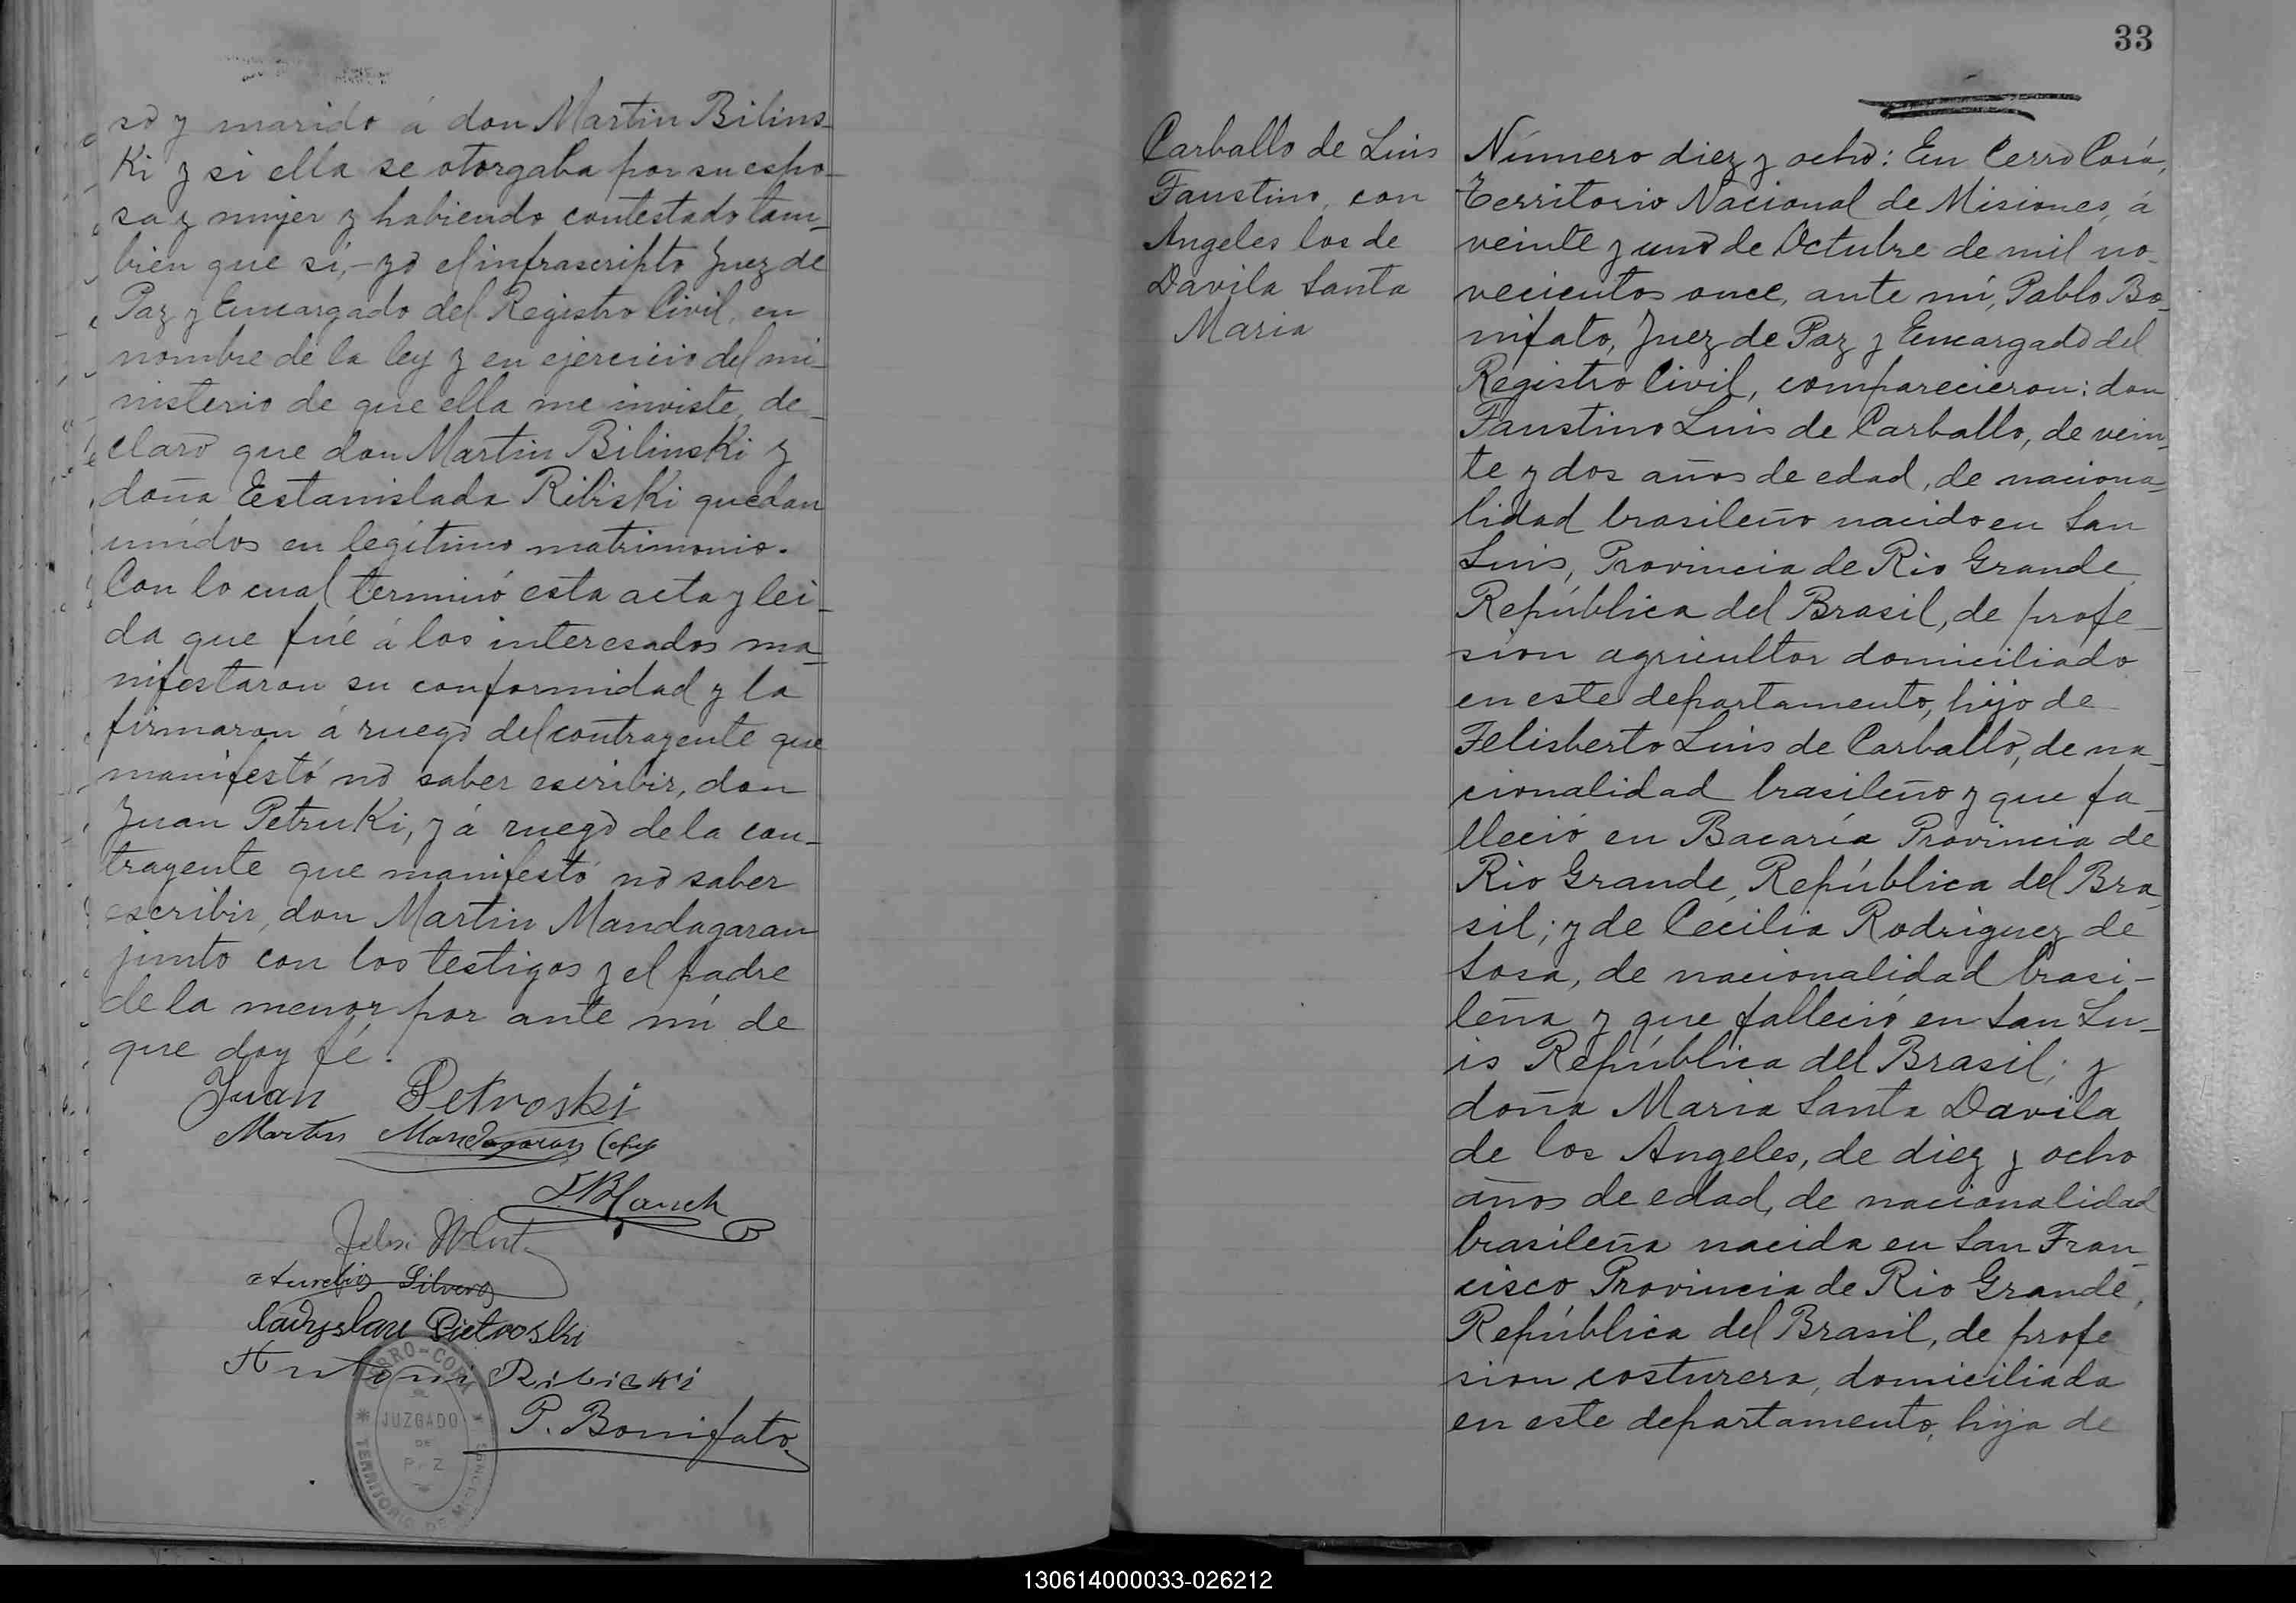 so y marido á don Martin Bilins-
Ki y si ella se otorgaba por su espo-
sa y mujer y habiendo contestado tam-
bien que sí,-yo el infrascripto Juez de
Paz y Encargado del Registro Civil, en
nombre de la ley y en ejercicio del mi-
nisterio de que ella me inviste, de-
claro que don Martin Bilinski y
doña Estanislada Ribiski quedan
unídos en legítimo matrimonio.
Con lo cual terminó esta acta y lei-
da que fué á los interesados ma-
nifestaron su conformidad y la
firmaron á ruego del contrayente que
manifestó no saber escribir, don
Juan Petruki, y á ruego de la con-
trayente que manifestó no saber
escribir, don Martin Mandagaran
junto con los testigos y el padre
de la menor por ante mí de
que doy fé.
Juan Petroski
Martin Mandagaran
Aurelio Silvero
Ladyslau Pietroski
Antoni Ribiski
P. Bonifato
CERRO-CORÁ
JUZGADO
DE
PAZ
TERRITORIO DE MISIONES
33
Carballo de Luis
Faustino, con
Angeles los de
Davila Santa
Maria
Número diez y ocho: En Cerro Corá,
Territorio Nacional de Misiones, á
veinte y uno de Octubre de mil no-
vecientos once, ante mí, Pablo Bo-
nifato, Juez de Paz y Encargado del
Registro Civil, comparecieron: don
Faustino Luis de Carballo, de vein-
te y dos años de edad, de naciona-
lidad brasileño nacido en San
Luis, Provincia de Rio Grande,
República del Brasil, de profe-
sion agricultor domiciliado
en este departamento, hijo de
Felisberto Luis de Carballo, de na-
cionalidad brasileño y que fa-
lleció en Bacaría Provincia de
Rio Grande, República del Bra-
sil; y de Cecilia Rodriguez de
Sosa, de nacionalidad brasi-
leña y que falleció en San Lu-
is República del Brasil; y
doña Maria Santa Davila
de los Angeles, de diez y ocho
años de edad, de nacionalidad
brasileña nacida en San Fran-
cisco Provincia de Rio Grande,
República del Brasil, de profe
sion costurera, domiciliada
en este departamento, hija de
130614000033-026212